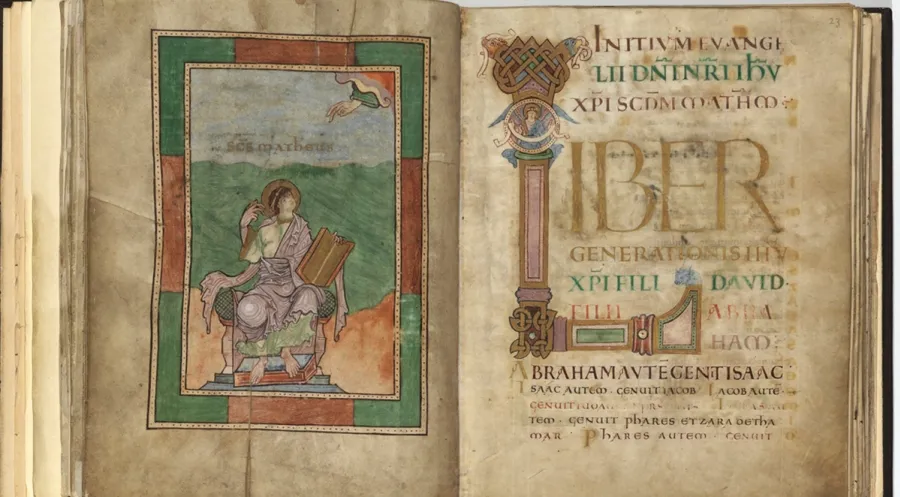 SC̄S MATHEUS
23
INITIVM EVANGE
LII DN̄I N̄RI IHV
XP̄I SCDM MATHM :
LIBER
GENERATIONIS IHV
XP̄I FILI DAVID·
FILII ABRA
HAM:
ABRAHAM AVTĒ GENT ISAAC·
ISAAC AUTEM · GENUIT IACOB IACOB AUTĒ·
GENUIT
TEM · GENUIT PHARES ET ZARA DE THA
MAR · PHARES AUTEM · GENUIT